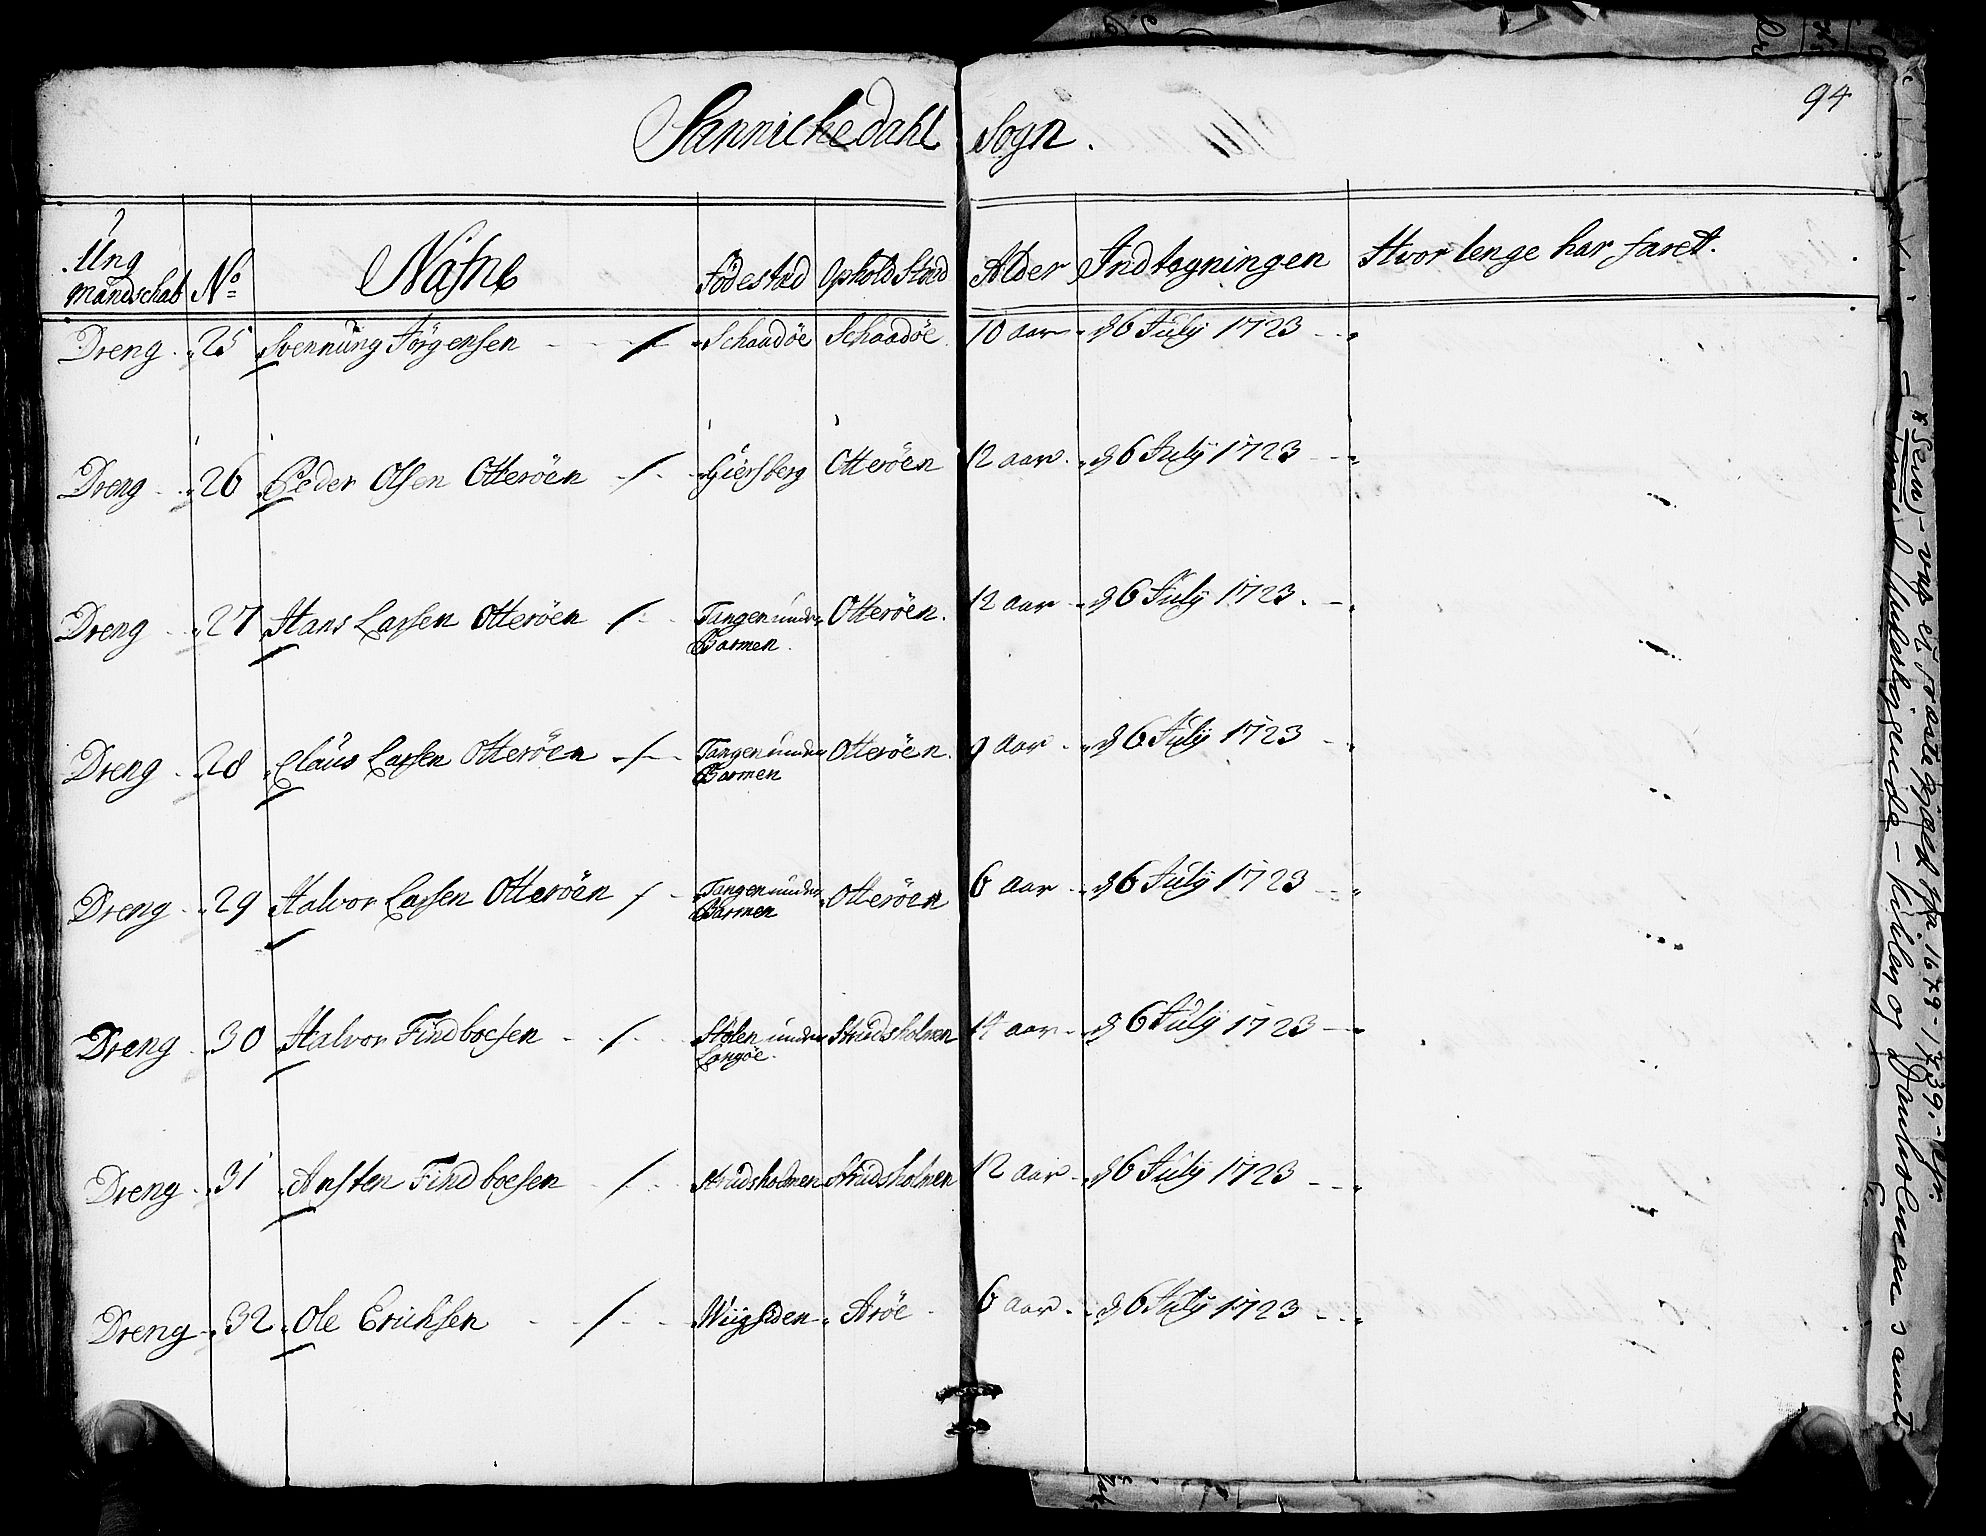 94
Sannichedahl Sogn.
Ung
Mandschab No Nafne Födestæd Ophold Stæd Alder Indtegningen Hvor lenge har faret.
Dreng 25 Svennüng Jörgensen Schaadöe Schaadöe 10 aar d 6 July 1723
Dreng 26 Peder Olsen Otteröen Giersberg Otteröen 12 aar d 6 July 1723
Dreng 27 Hans Larsen Otteröen Tangen under Barmen Otteröen. 12 aar d 6 July 1723
Dreng 28 Claus Larsen Otteröen Tangen under Barmen Otteröen. 9 aar d 6 July 1723
Dreng 29 Halvor Larsen Otteröen Tangen under Barmen Otteröen 6 aar d 6 July 1723
Dreng 30 Halvor Findboesen Stölen under Langöe Strudsholmen 14 aar d 6 July 1723
Dreng 31 Ansten Findboesen Strudsholmen Strudsholmen 12 aar d 6 July 1723
Dreng 32 Ole Erichsen Wiigsiden Aröe 6 aar d 6 July 1723
fra 1679-1739.
og samt